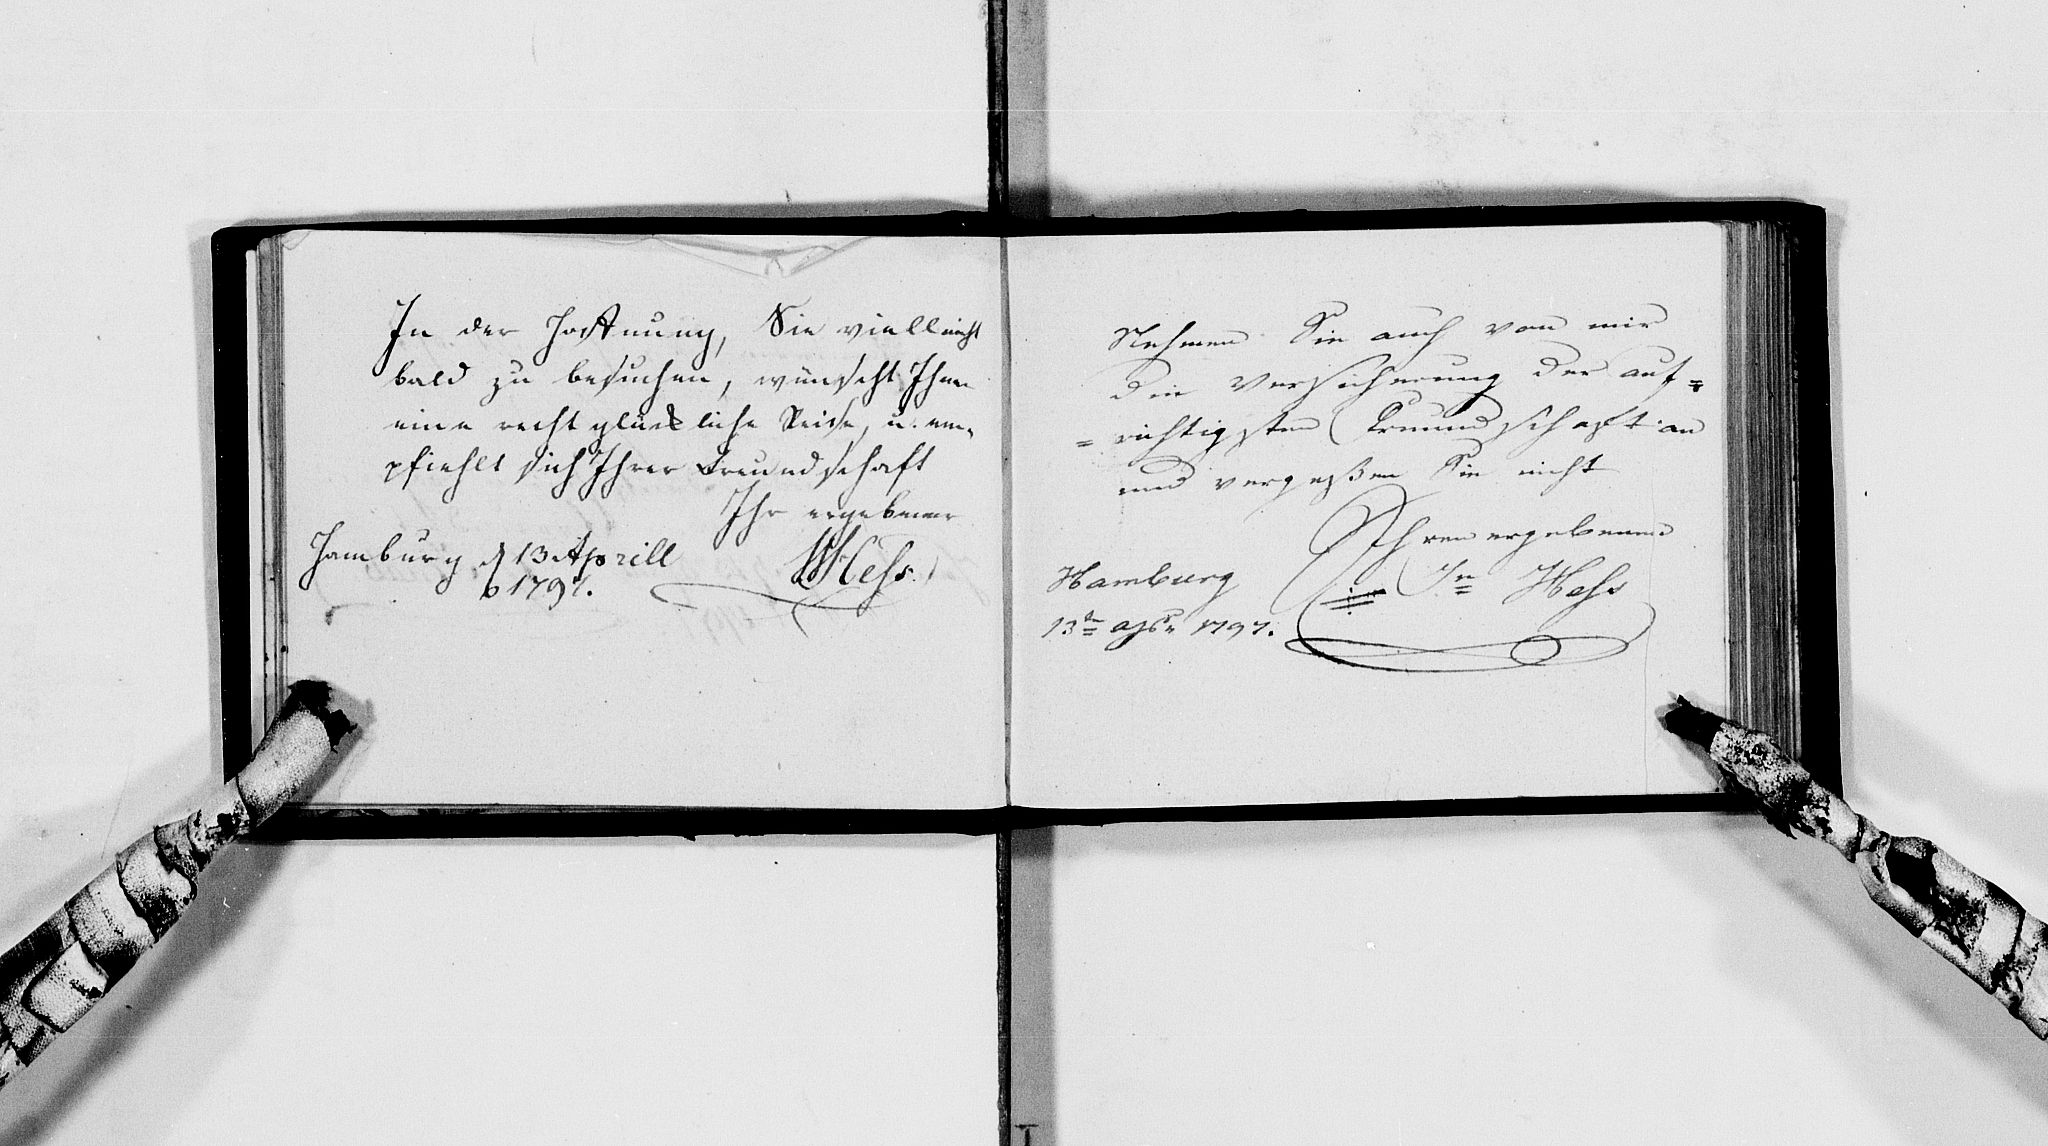 In der Hoffnung, Sie vielleicht
bald zu besuchen, wünscht Ihnen
eine recht glückliche Reise, u. em-
pfiehlt sich Ihrer Freundschaft
Ihr ergebener
Hamburg d 13 Aprill
1797.
Hess.
Nehmen Sie auch von mir
die Versicherung der auf=
=richtigsten Freundschaft an
und vergeßen Sie nicht
Ihren ergebenen
Hamburg
Hess
13 1797.